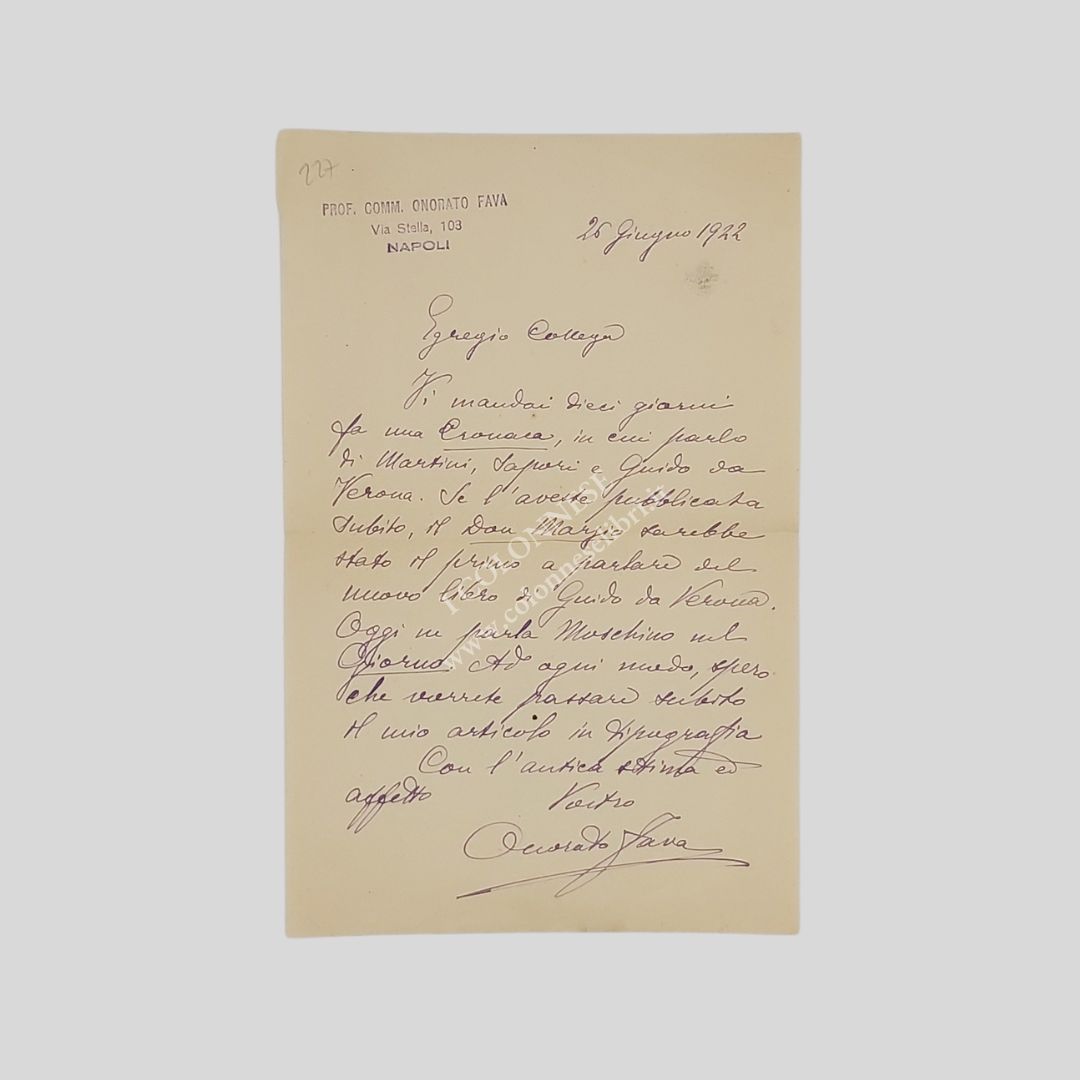 227
PROF. COMM. ONORATO FAVA
Via Stella, 103
NAPOLI
26 Giugno 1922
Egregio Collega
Vi mandai dieci giorni
fa una Cronaca, in cui parlo
di Martini, Sapori e Guido da
Verona. Se l'aveste pubblicata
subito, il Don Marzio sarebbe
stato il primo a parlare del
nuovo libro di Guido da Verona.
Oggi ne parla Moschino nel
Giorno. Ad ogni modo, spero
che vorrete passare subito
il mio articolo in tipografia
Con l'antica stima ed
affetto Vostro
Onorato Fava
COLONNESE
www.colonneselibri.it